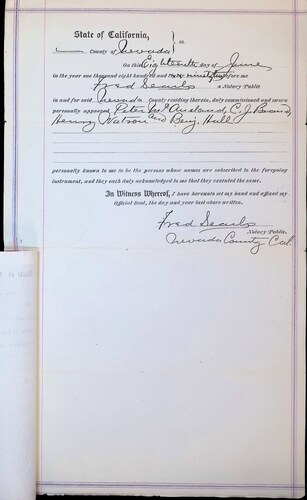 State of California,
County of Nevada } ss.
On this Eighteenth day of June
in the year one thousand eight hundred and ninety before me
Fred Searls a Notary Public
in and for said Nevada County residing therein, duly commissioned and sworn
personally appeared Peter McCausland, C. J. Brand,
Henry Watson and Benj. Hall
personally known to me to be the persons whose names are subscribed to the foregoing
instrument, and they each duly acknowledged to me that they executed the same.
In Witness Whereof, I have hereunto set my hand and affixed my
Official Seal, the day and year last above written.
Fred Searls
Notary Public.
Nevada County Cal